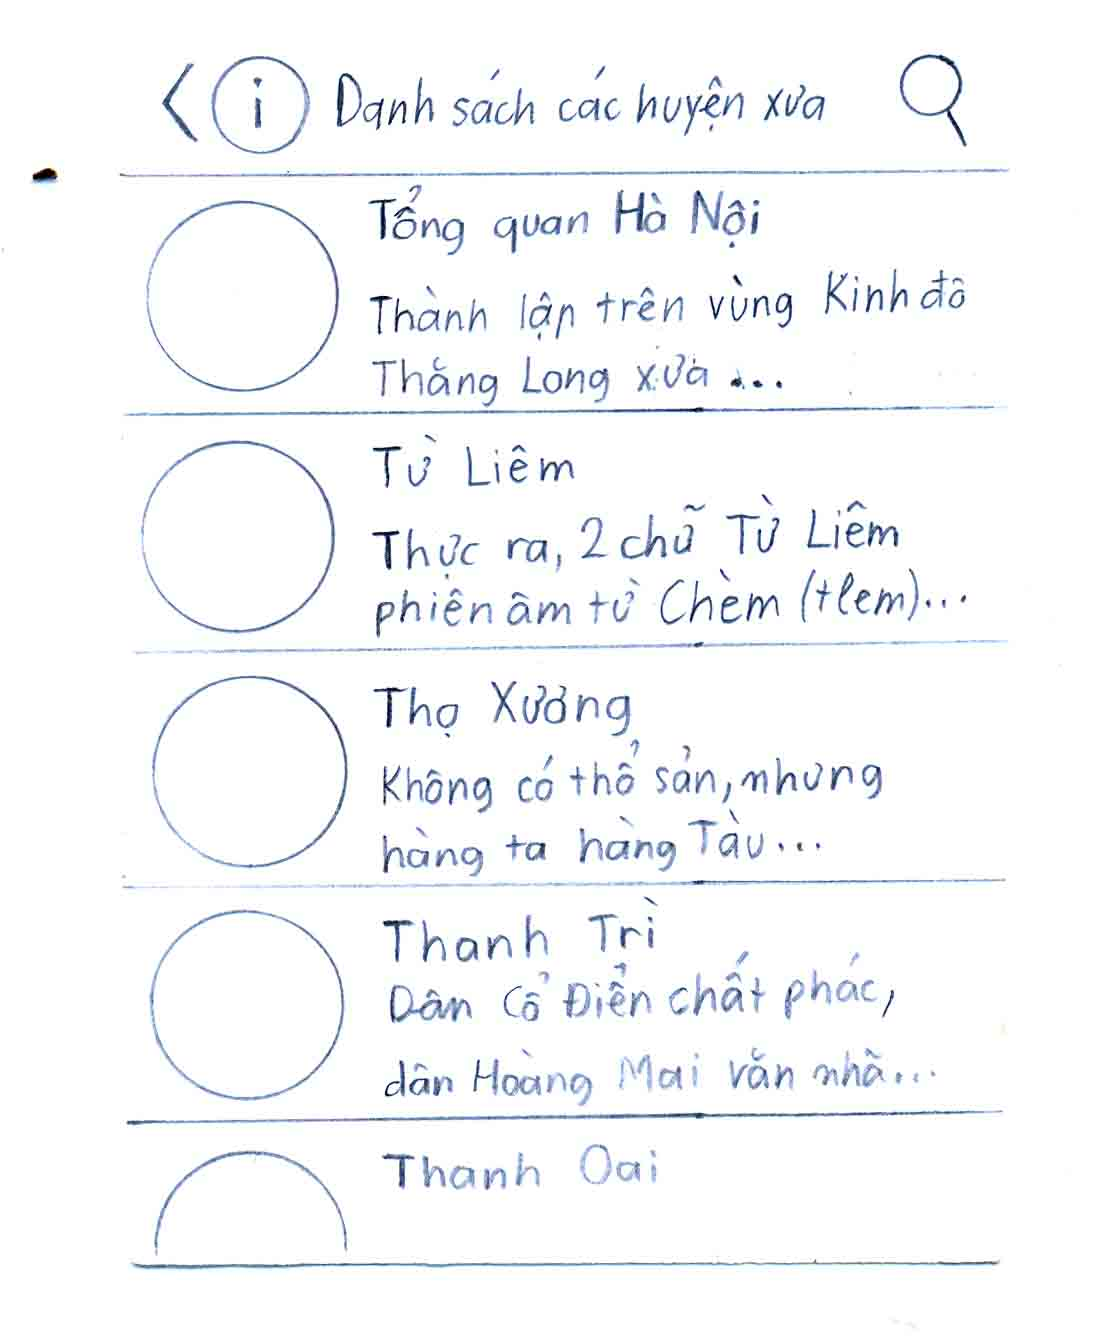 i Danh sách các huyện xưa
Tổng quan Hà Nội
Thành lập trên vùng Kinh đô
Thăng Long xưa ...
Từ Liêm
Thực ra, 2 chữ Từ Liêm
phiên âm từ Chèm (tlem)...
Thọ Xương
Không có thổ sản, nhưng
hàng ta hàng Tàu...
Thanh Trì
Dân Cổ Điển chất phác,
dân Hoàng Mai văn nhã...
Thanh Oai